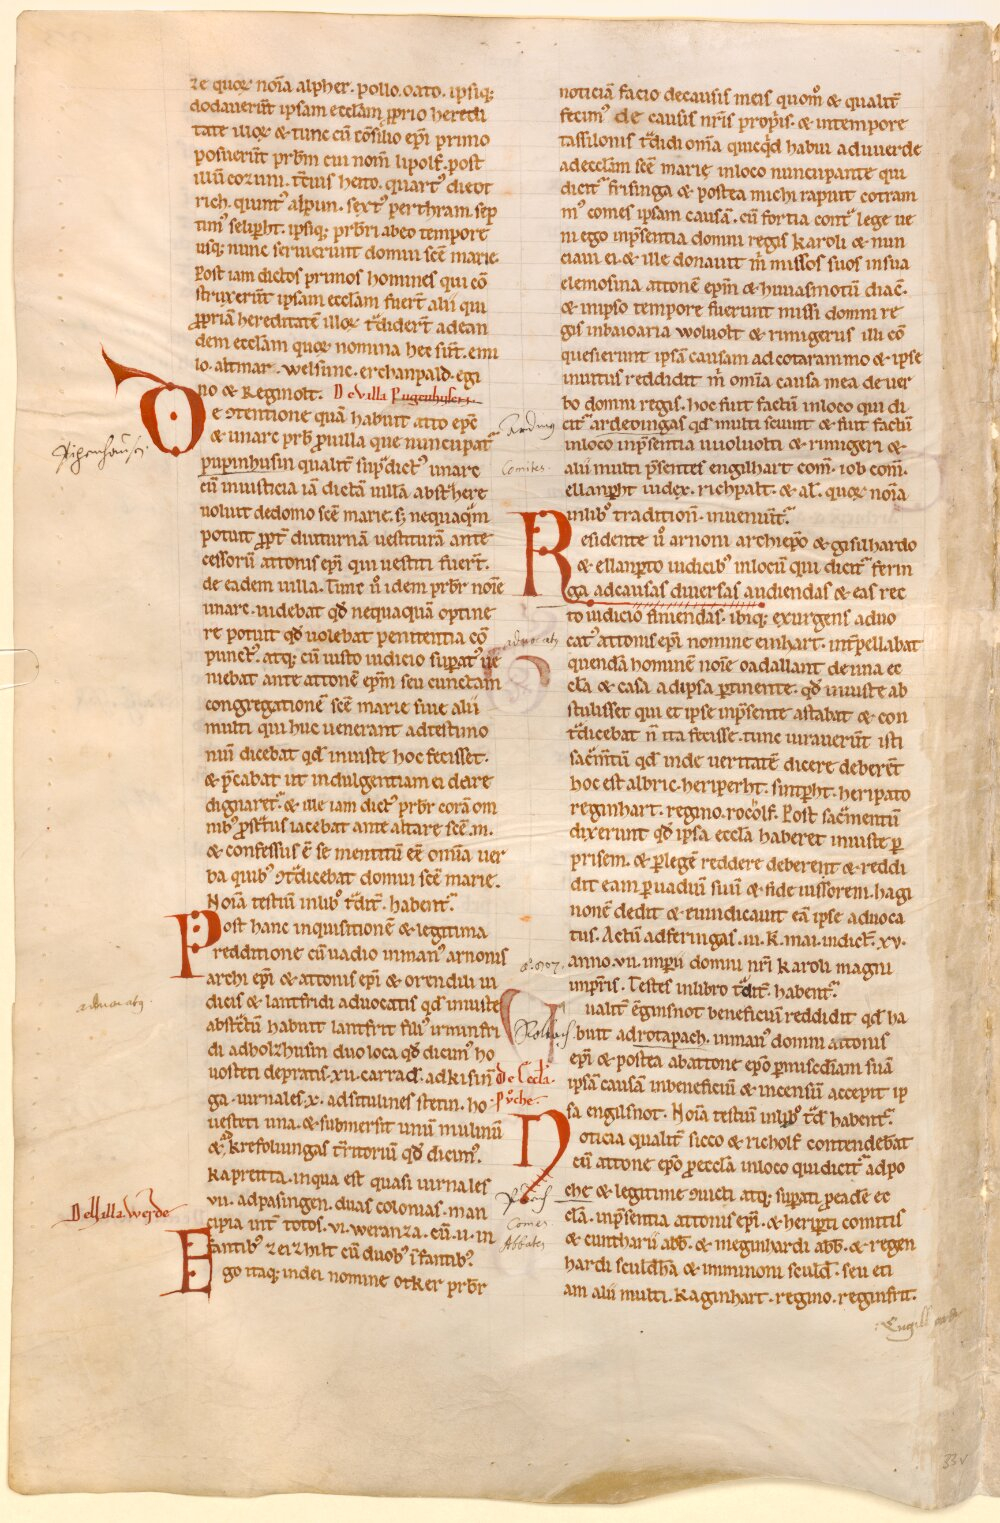 ze quoꝝ noīa alpher. pollo. oato. ipsiq;
dodauer̄t ipsam ecclām ꝓprio heredi
tate illoꝝ & tunc cū cōsilio ep̄i primo
posuer̄t prb̄m cui nom̄ lipolf. post
illū cozuni. t̄cius heito. quart᾽ dieot
rich. quint᾽ alpun. sext᾽ perthram. sep
tim᾽ selip̄ht. ipsiq; prb̄ri abeo tempore
usq; nunc seruierunt domui scē marie.
Post iam dictos primos homines qui cō
struxer̄t ipsam ecclām fuer̄t alii qui
ꝓpriā hereditatē illoꝝ t᷑dider̄t adean
dem ecclām quoꝝ nomina hec sūt. emi
lo. altmar. welsunc. erchanpald. egi
no & Reginolt. De villa Pugenhusen
De ꝯtentione quā habuit atto ep̄c
& unare prb̄ ꝓuilla que nuncupat᷑
pupinhusin qualit̄ sup᷑dict᾽ unare
cū iniusticia iā dictā uillā abst᷑here
uoluit dedomo scē marie. s; nequaq̄m
potuit ꝓpt̄ diuturnā uestiturā ante
cessorū attonis ep̄i qui uestiti fuer̄t.
de eadem uilla. Tunc ū idem prb̄r noīe
unare. uidebat qd̄ nequaquā optine
re potuit qd̄ uolebat penitentia cō
punct᾽. atq; cū iusto iudicio sup̄at᾽ ue
niebat ante attonē ep̄m seu cunctam
congregationē scē marie siue alii
multi qui huc uenerant adtestimo
niū dicebat qd̄ iniuste hoc fecisset.
& p̄cabat ut indulgentiam ei dare
dignaret᷑. & ille iam dict᾽ prb̄r corā om
nib᾽ ꝓst᷑tus iacebat ante altare scē .m.
& confessus ē se mentitū eē omīa uer
ba quib᾽ ꝯt᷑dicebat domui scē marie.
Noīa testiū inlib᾽ t᷑dit̄. habent᷑.
Post hanc inquisitionē & legitima
redditione cū uadio inman᾽ arnonis
archi ep̄i & attonis ep̄i & orendili iu
dicis & lantfridi aduocatis qd̄ iniuste
abst᷑ctū habuit lantfrit fili᾽ urminfri
di adholzhusin duo loca qd̄ dicim᾽ ho
uosteti depratis .xii. carrad̄. adkisin
ga. iurnales .x. adsitulines stetin. ho
uesteti una. & submersit unū mulinū
& krefoluingas t̄ritoriū qd̄ dicim᾽.
kaprentta. inqua est quasi iurnales
vii. adpasingen. duas colonias. man
cipia int̄ totos .vi. weranza. cū .ii. in
fantib᾽ zeizhilt cū duob᾽ īfantib᾽.
Ego itaq; indei nomine otker prb̄r
Pipenhausen.
aduocatus.
De villa. Werde
noticiā facio decausis meis quom̊ & qualit̄
fecim᾽ de causis nr̄is propīs. & intempore
tassilonis t᷑didi omīa quicq̄d habui aduuerde
adecclām scē marie inloco nuncupante qui
dicit᷑ frisinga & postea michi rapuit cotram
m᾽ comes ipsam causā. cū fortia cont᷑ lege ue
ni ego inp̄sentia domni regis karoli & nun
ciaui ei & ille donauit m̄ missos suos insua
elemosina attonē ep̄m & huuasmotū diac̄.
& inipso tempore fuerunt missi domni re
gis inbaioaria wolfolt & rimigerus illi cō
quesierunt ipsā causam ad cotarammo & ipse
inuitus reddidit m̄ omīa causa mea de uer
bo domni regis. hoc fuit factū inloco qui di
cit᷑ ardeoingas qd̄ multi sciunt & fuit factū
inloco inp̄sentia uuolfolti & rimigeri &
alii multi p̄sentes engilhart com̄. iob com̄.
ellanp̄ht iudex. richpalt. & al̄. quoꝝ noīa
inlib᾽ tradition̄. inueniūt᷑.
Residente ū arnoni archiep̄o & gisilhardo
& ellanp̄to iudicib᾽ inlociū qui dicit᷑ ferin
ga adcausas diuersas audiendas & eas rec
to iudicio finiendas. ibiq; exurgens aduo
cat᾽ attonis ep̄i nomine einhart. int̄pellabat
quendā hominē noīe oadallant de una ec
clā & casa adipsa p̄tinente. qd̄ iniuste ab
stulisset qui et ipse inp̄sente astabat & con
t᷑dicebat n̄ ita fecisse. tunc iurauer̄t isti
sac᷑mtū qd̄ inde ueritatē dicere deber̄t
hoc est albric. heriperht. sintp̄ht. heripato
reginhart. regino. rocholf. Post sac᷑mentū
dixerunt qd̄ ipsa ecclā haberet iniuste ꝑ
prisem. & ꝑlegē reddere deberent & reddi
dit eam ꝑuadiū suū & fide iussorem. hagi
nonē dedit & euindicauit eā ipse aduoca
tus. Actū adferingas .iii. k̄. mai. indict̄. xv.
anno .vii. imp̄ii domni nr̄i karoli magni
imp̄ris. Testes inlibro t᷑dit̄. habent᷑.
Qualit̄ ēginsnot beneficiū reddidit qd̄ ha
buit adrotapach. inman᾽ domni attonis
ep̄i & postea abattone ep̄o ꝑmisc̄diam suā
ipsā causam inbeneficiū & incensiū accepit ip
sa engilsnot. Noīa testiū inlib᾽ t᷑d̄ habent᷑.
De Ecclā.
Pv̊che.
Noticia qualit̄ sicco & richolf contendebāt
cū attone ep̄o ꝓecclā inloco qui dicit᷑ adpo
che & legitime ꝯuicti atq; sup̄ati ꝓeadē ec
clā. inp̄sentia attonis ep̄i. & herip̄ti comitis
& cunthariī abb̄. & meginhardi abb̄. & regen
hardi sculdh̄ā & imminoni sculd̄. seu eti
am alii multi. kaginhart. regino. reginfrit.
Ardning
Comites.
aduocatus
Ao 807.
Rotbach.
Puch
Comes
Abbates
33v